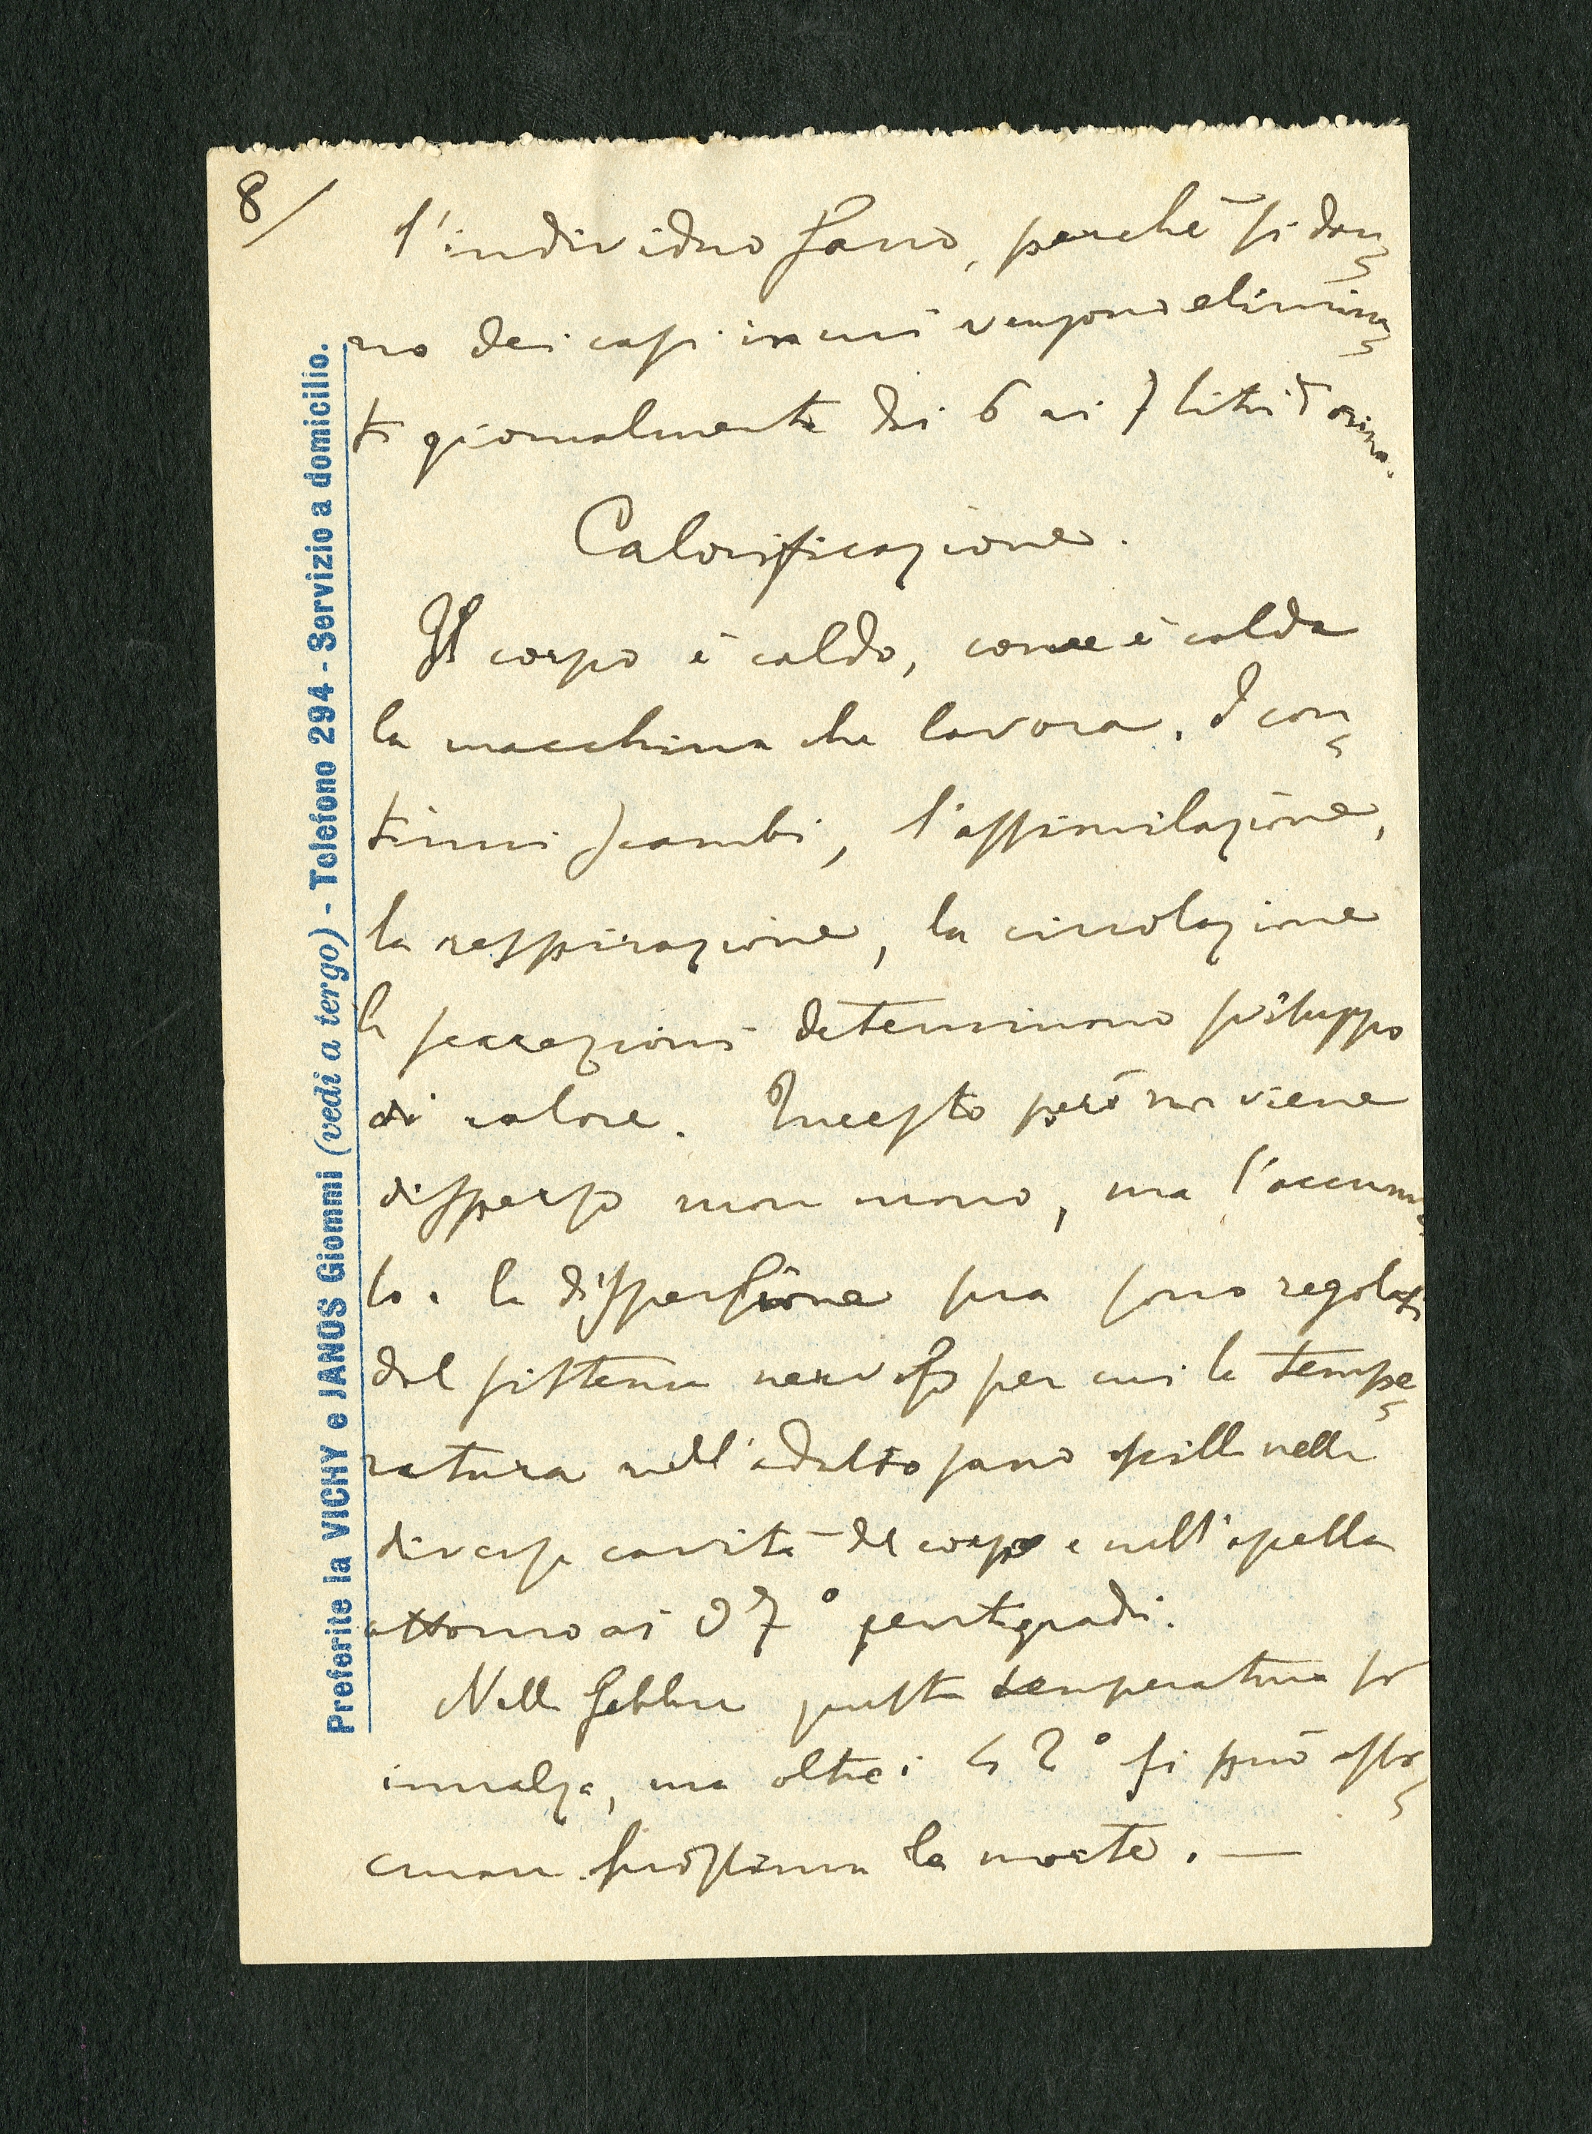 8/
l'individuo sano, perché si dan=
no dei casi in cui vengono elimina=
ti giornalmente dai 6 ai 7 litri d'orina.
Calorificazione.
Il corpo è caldo, come è calda
la macchina che lavora. I con=
tinui scambi, l'assimilazione,
la respirazione, la circolazione
le secrezioni determinano sviluppo
di calore. Questo però non viene
disperso man mano, ma l'accumu=
lo e la dispersione sua sono regolati
dal sistema nervoso per cui la tempe=
ratura nell'adulto sano oscilla nelle
diverse cavità del corpo e nell'ascella
attorno ai 37° centigradi.
Nella febbre questa temperatura si
innalza, ma oltre i 42° si può
prossima la morte. —
Preferite la VICHY e JANOS Giommi (vedi a tergo) - Telefono 294 - Servizio a domicilio.